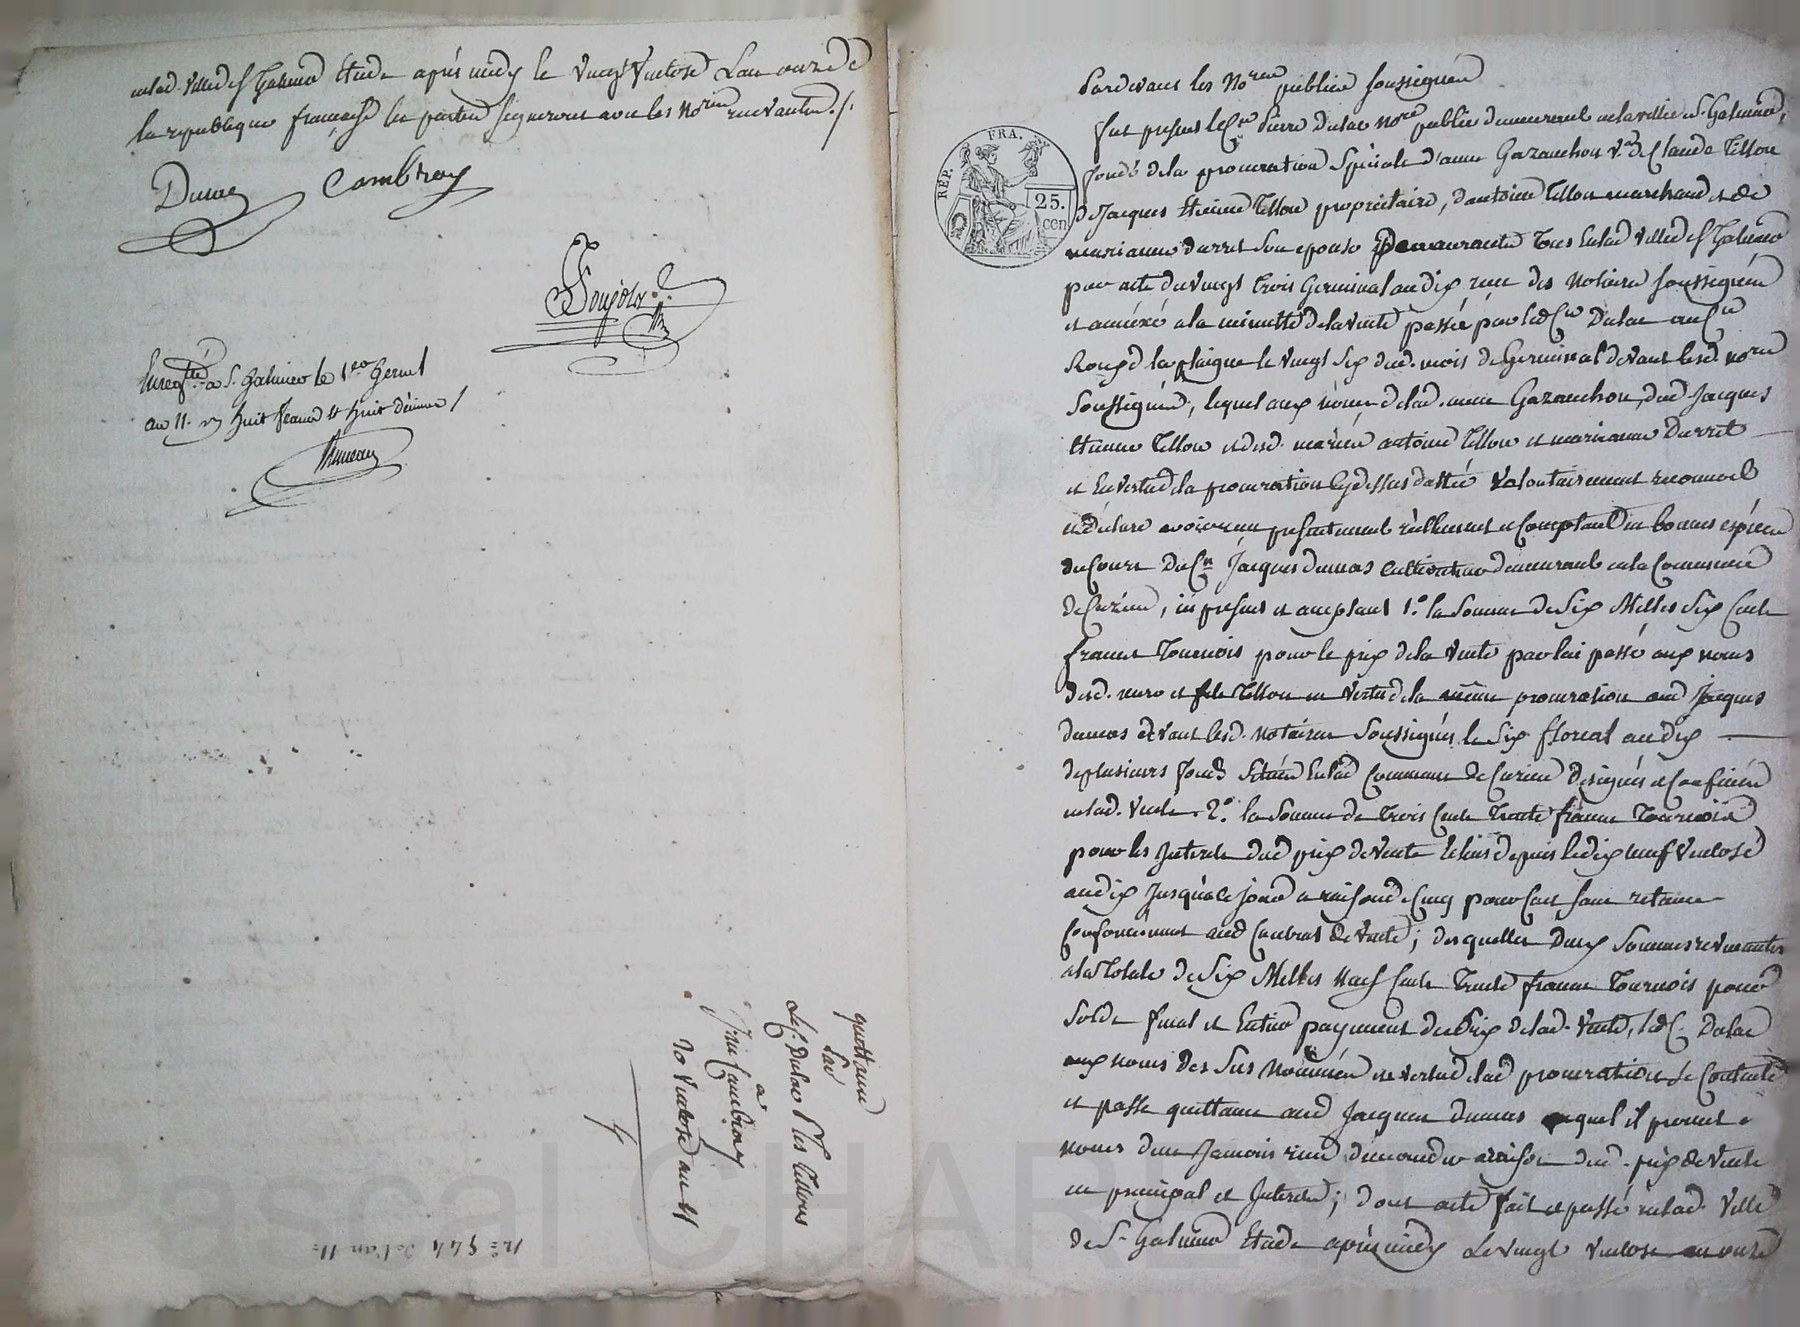 en lad. ville de St Galmier Etude après midy le vingt Ventose L'an onze de
la republique française les parties signeront avec les Nores recevants ./.
Dulac
Cambray
Enregtré a St. Galmier le 1er Germl
an 11. Rx huit francs et huit décimes /
quittance
Par
Le C. Dulac Pr les Tellons
a
20 Ventose an 11
No 544 de l'an 11
Pardevant les Nores publics soussignés
REP. FRA.
25. cen
fut present le Cen Pierre Dulac Nore public demeurant en la ville de St. Galmier,
fondé de la procuration spéciale d'anne Gazanchon Ve de Claude Tellon
de Jacques Etienne Tellon propriétaire, d'antoine Tellon marchand et de
marianne Durret son epouse Demeurants Tous en lad. ville de St Galmier
par acte du vingt trois Germinal an dix reçu des Notaires soussignés
et annéxé a la minutte de la vente passée par led. Cen Dulac au Cen
le vingt six dud. mois de Germinal devant lesd. nores
soussignés, lequel aux noms de lad. anne Gazanchon, dud. Jacques
Etienne Tellon et desd. mariés antoine Tellon et marianne Durret
et En vertu de la procuration cy dessus dattée volontairement reconnoit
et déclare avoir reçu presentement réellement et Comptant en bonnes espèces
de Cours Du Cen Jacques Dumas Cultivateur demeurant en la Commune
de Cuzieu, ici present et acceptant 1.° la somme de Six Milles Six Cents
francs Tournois pour le prix de la vente par lui passé aux noms
desd. mere et fils Tellon en vertu de la même procuration aud. Jacques
dumas devant lesd. notaires soussignés le Six floreal an dix
de plusieurs fonds situés En lad. Commune de Cuzieu designés et Confinés
en lad. vente. 2.° la somme de Trois Cents Trente francs Tournois
pour les Interets dud. prix de vente Echus depuis le dix neuf Ventose
an dix Jusqu'à ce jour a raison de Cinq pour Cent sans retenue
Conformement aud. Contrat de vente; desquelles Deux sommes revenantes
a la Totale de Six Milles Neuf Cents Trente francs Tournois pour
Solde final et Entier payement du Prix de lad. vente, led. C. Dulac
aux noms des sus Nommés en vertu de lad. procuration se Contente
et passe quittance aud. Jacques Dumas auquel il promet
noms de ne Jamais rien demander a raison dud. prix de vente
en principal et Interets; dont acte fait et passé en lad. Ville
de St. Galmier Etude après midy Le vingt Ventose an onze
Pascal CHAR